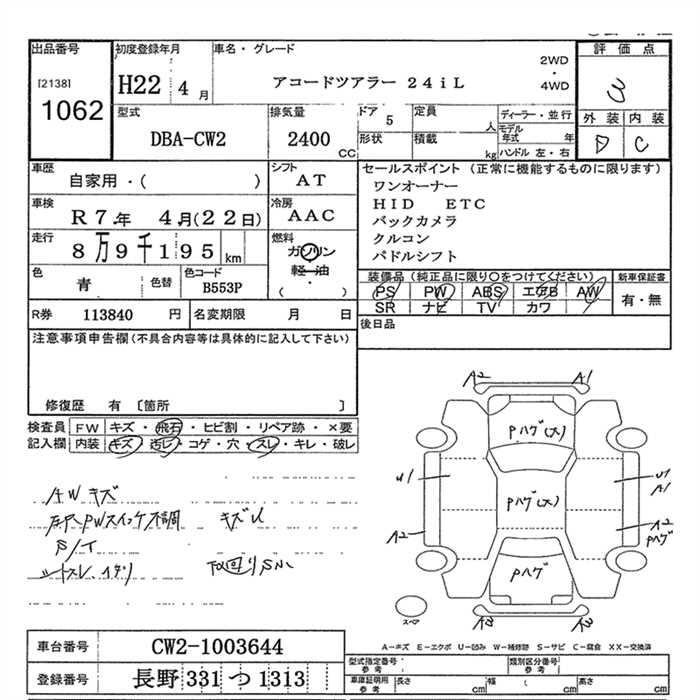 出品番号 初度登録年月 車名・グレード 評価点
[2138] 1062
H22 4月 アコードツアラー 24iL 2WD・4WD 3
型式 排気量 ドア 5 定員 人 ディーラー・並行 外装 内装
DBA-CW2 2400 CC 形状 積載 kg モデル年式 年 ハンドル 左・右 D C
車歴 自家用・( ) シフト AT
セールスポイント (正常に機能するものに限ります)
ワンオーナー
HID ETC
バックカメラ
クルコン
パドルシフト
車検 R7年 4月(22日) 冷房 AAC
走行 8万9千195 km 燃料 ガソリン 軽油 ・ ( )
色 青 色替 色コード B553P
装備品(純正品に限り○をつけてください) 新車保証書
PS PW ABS エアB AW 有・無
SR ナビ TV カワ
R券 113840 円 名変期限 月 日 後日品
注意事項申告欄(不具合内容等は具体的に記入して下さい)
修復歴 有 〔箇所 〕
検査員 FW キズ・飛石・ヒビ割・リペア跡・×要
記入欄 内装 キズ・汚レ・コゲ・穴・スレ・キレ・破レ
AWキズ
PWスイッチ不調 キズU
シートスレ、
下回りサビ
A2 A1
Pハゲ(大)
U1 Pハゲ(大) U1 A1
A2 A2 Pハゲ
Pハゲ
スペア
A=キズ E=エクボ U=凹み W=補修跡 S=サビ C=腐食 XX=交換済
車台番号 CW2-1003644
登録番号 長野 331 つ 1313
型式指定番号 参考 類別区分番号 参考
車庫証明用 参考 長さ cm 幅 cm 高さ cm